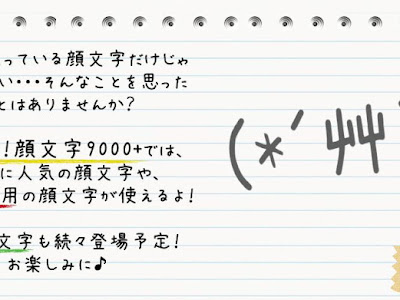 っている顔文字だけじゃ
い・・・そんなことを思った
とはありませんか?
!顔文字9000+では、
に人気の顔文字や、
用の顔文字が使えるよ!
文字も続々登場予定!
お楽しみに♪
(*´艸`